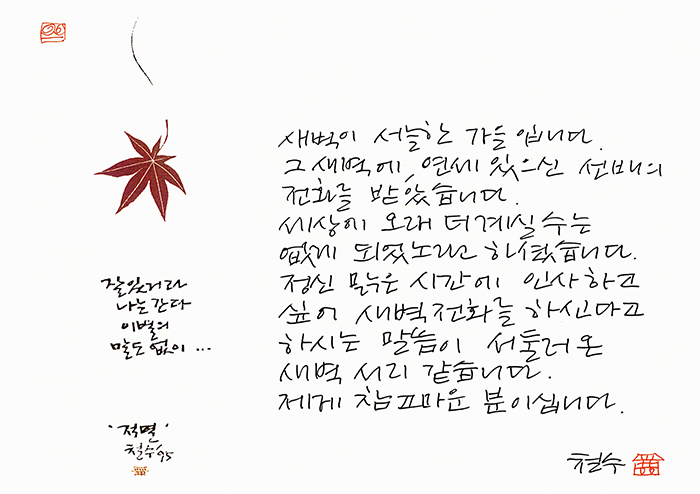 06
잘있거라
나는 간다
이별의
말도 없이 ...
'적멸'
철수 '95
새벽이 서늘한 가을입니다.
그 새벽에, 연세 있으신 선배의
전화를 받았습니다.
세상에 오래 더 계실 수는
없게 되었노라고 하셨습니다.
정신 맑은 시간에 인사하고
싶어 새벽전화를 하신다고
하시는 말씀이 서둘러 온
새벽 서리 같습니다.
제게 참 고마운 분이십니다.
철수